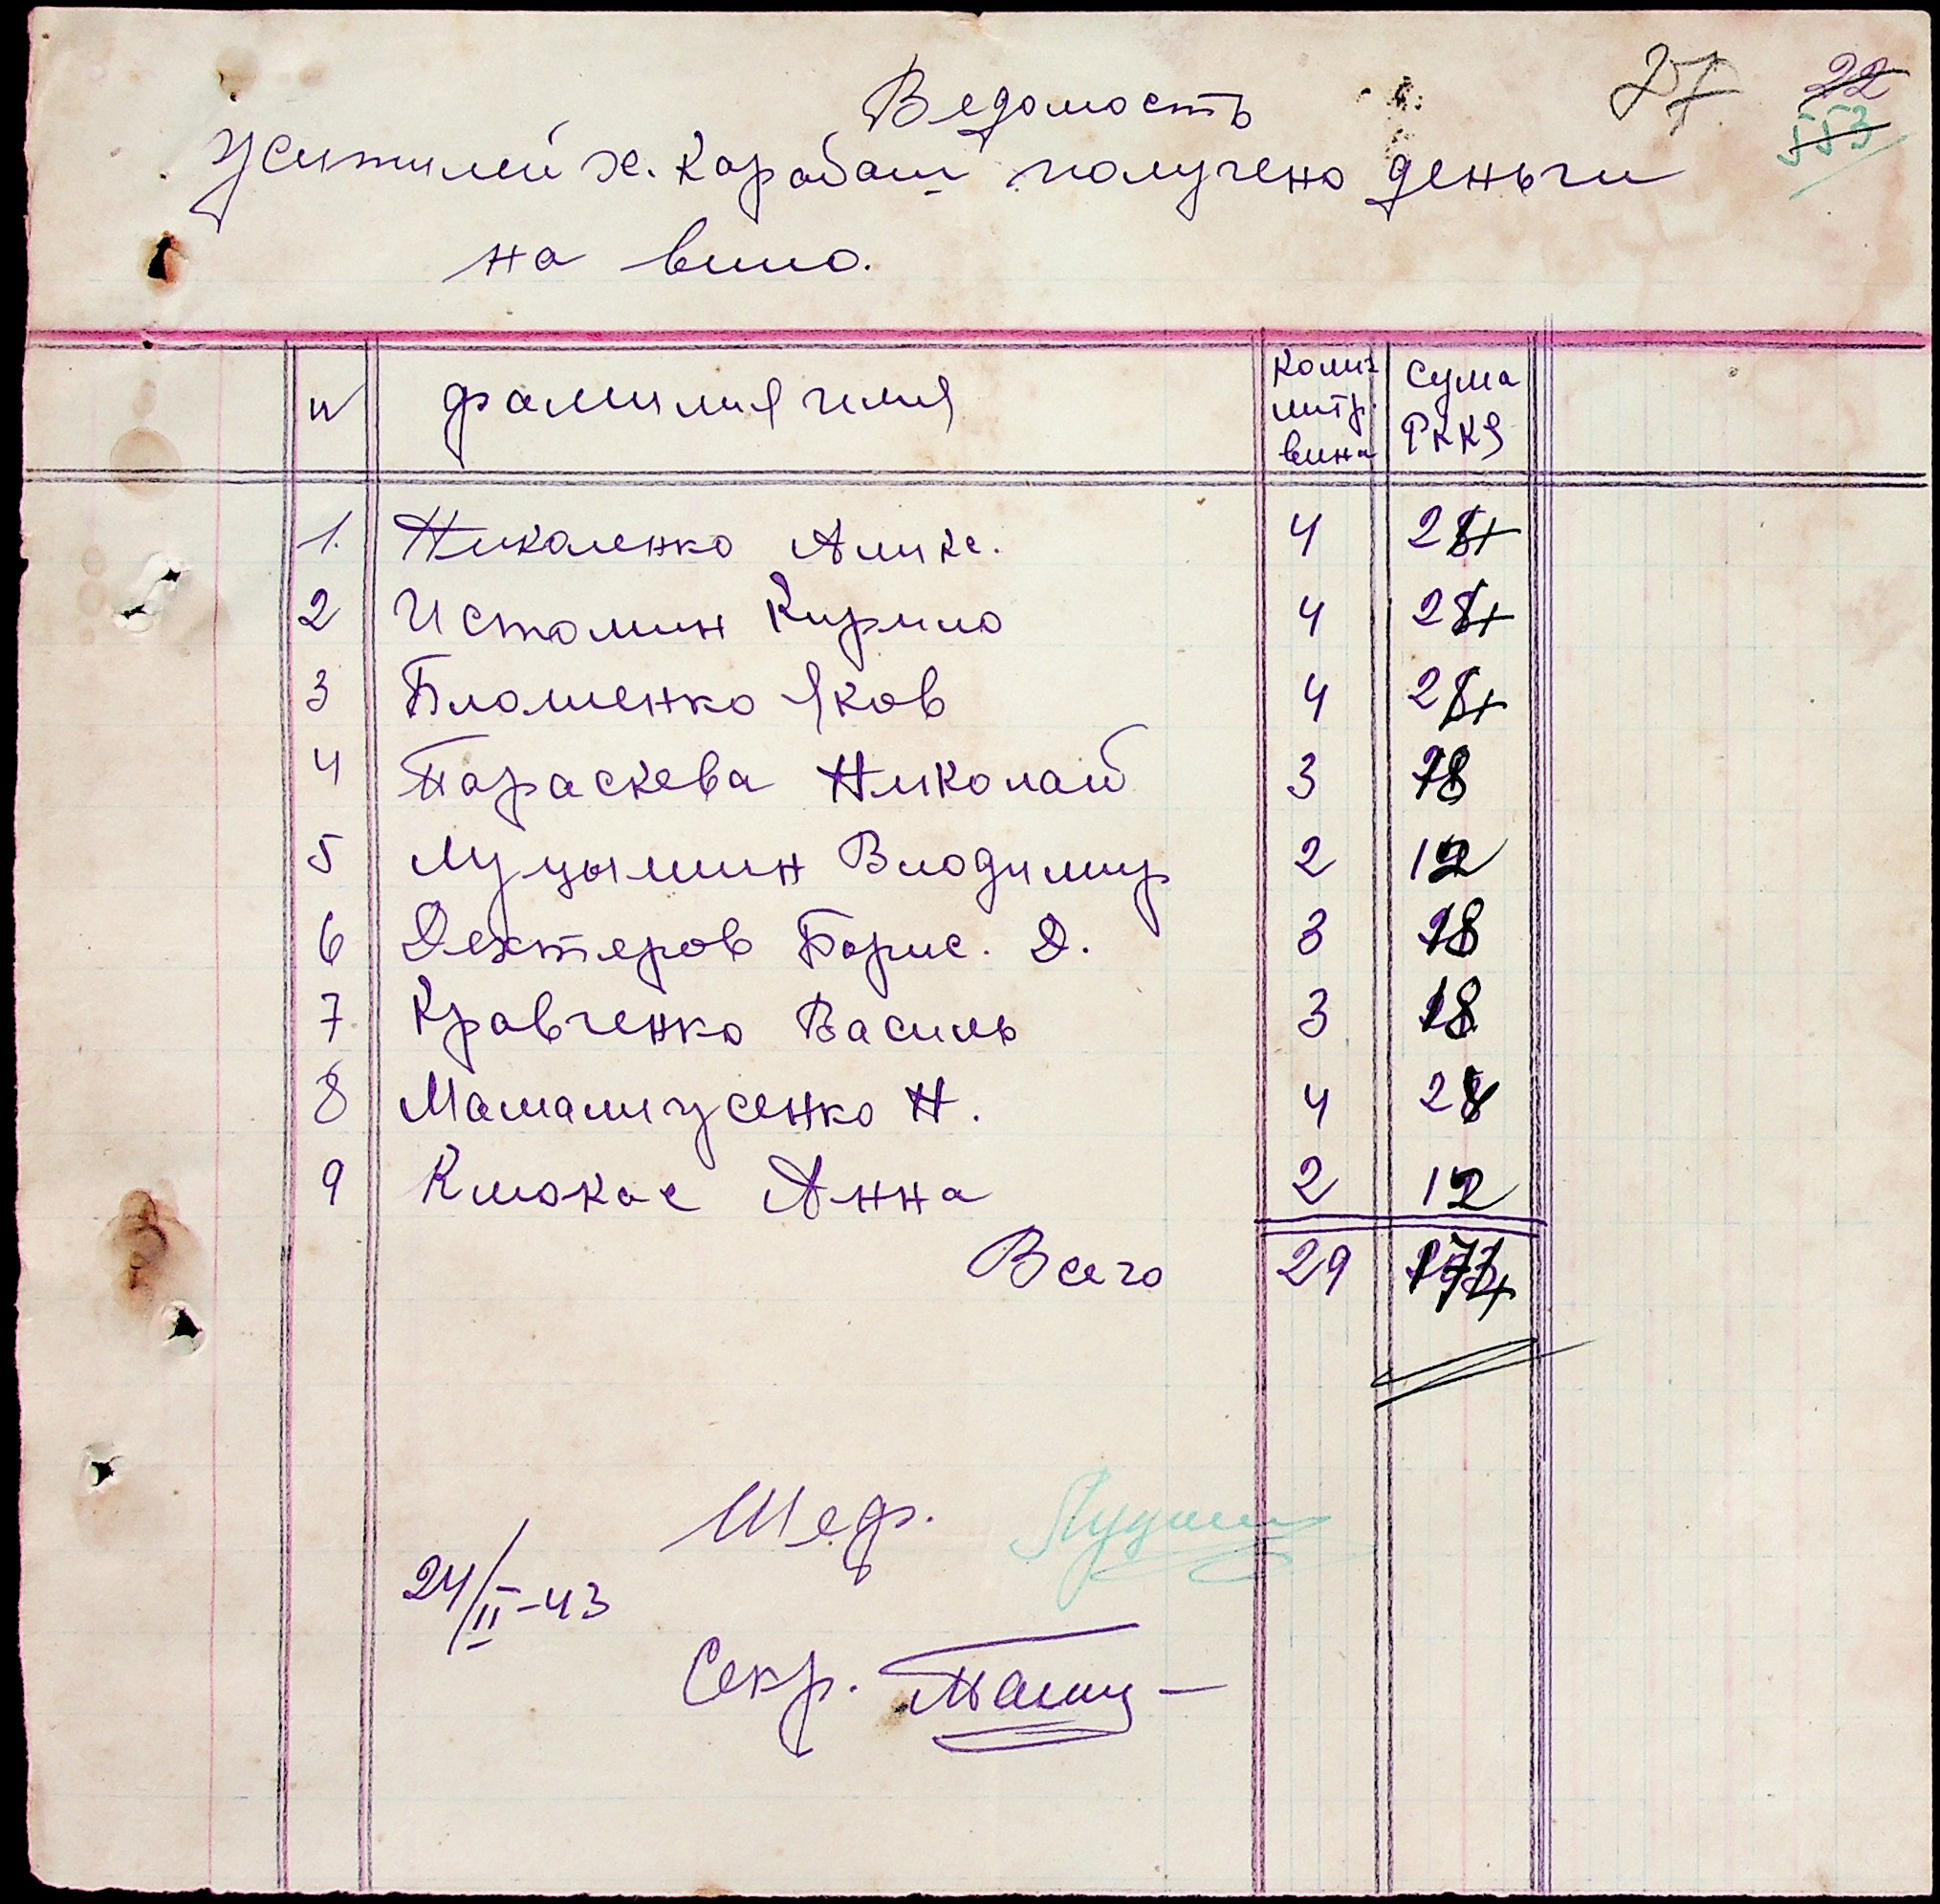 27 22
553
Ведомость
Жителей х. Карабаш получено деньги
на вино.
N фамилия имя Колич литр. вина Сума РККS
1. Николенко Алекс. 4 24
2 Истомин Кирило 4 24
3 Бломенко Яков 4 24
4 Параскева Николай 3 18
5 Луцышин Влодимир 2 12
6 Дехтеров Борис. Д. 3 18
7 Кравченко Василь 3 18
8 Мамалигусенко Н. 4 24
9 Клюкас Анна 2 12
Всего 29 174
Шеф.
24/II-43
Секр.